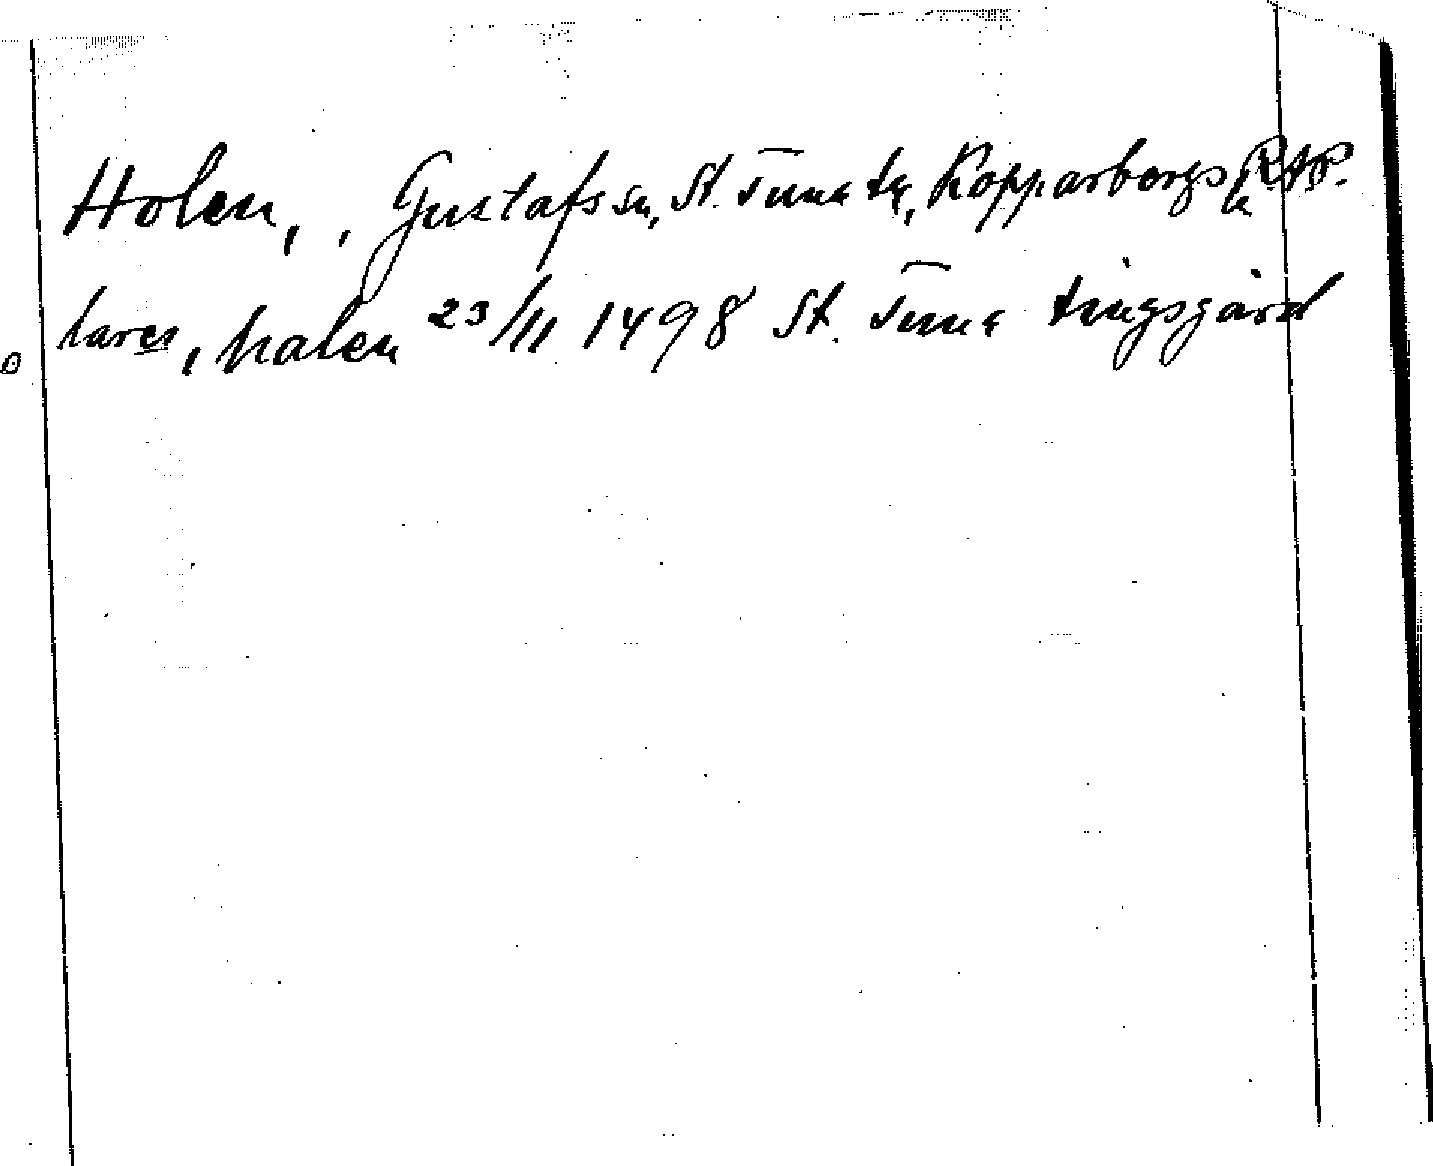 Holen, , Gustafs sn, St. Tuna tg, Kopparbergs l. RAP.
lares, halen 23/11 1498 St. Tuna tingsgård